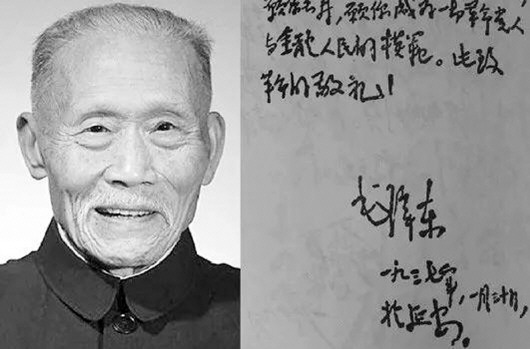 愿你成为一切革命党人
与全体人民的模范。此致
革命的敬礼！
毛泽东
一九三七年，一月三十日，
于延安。